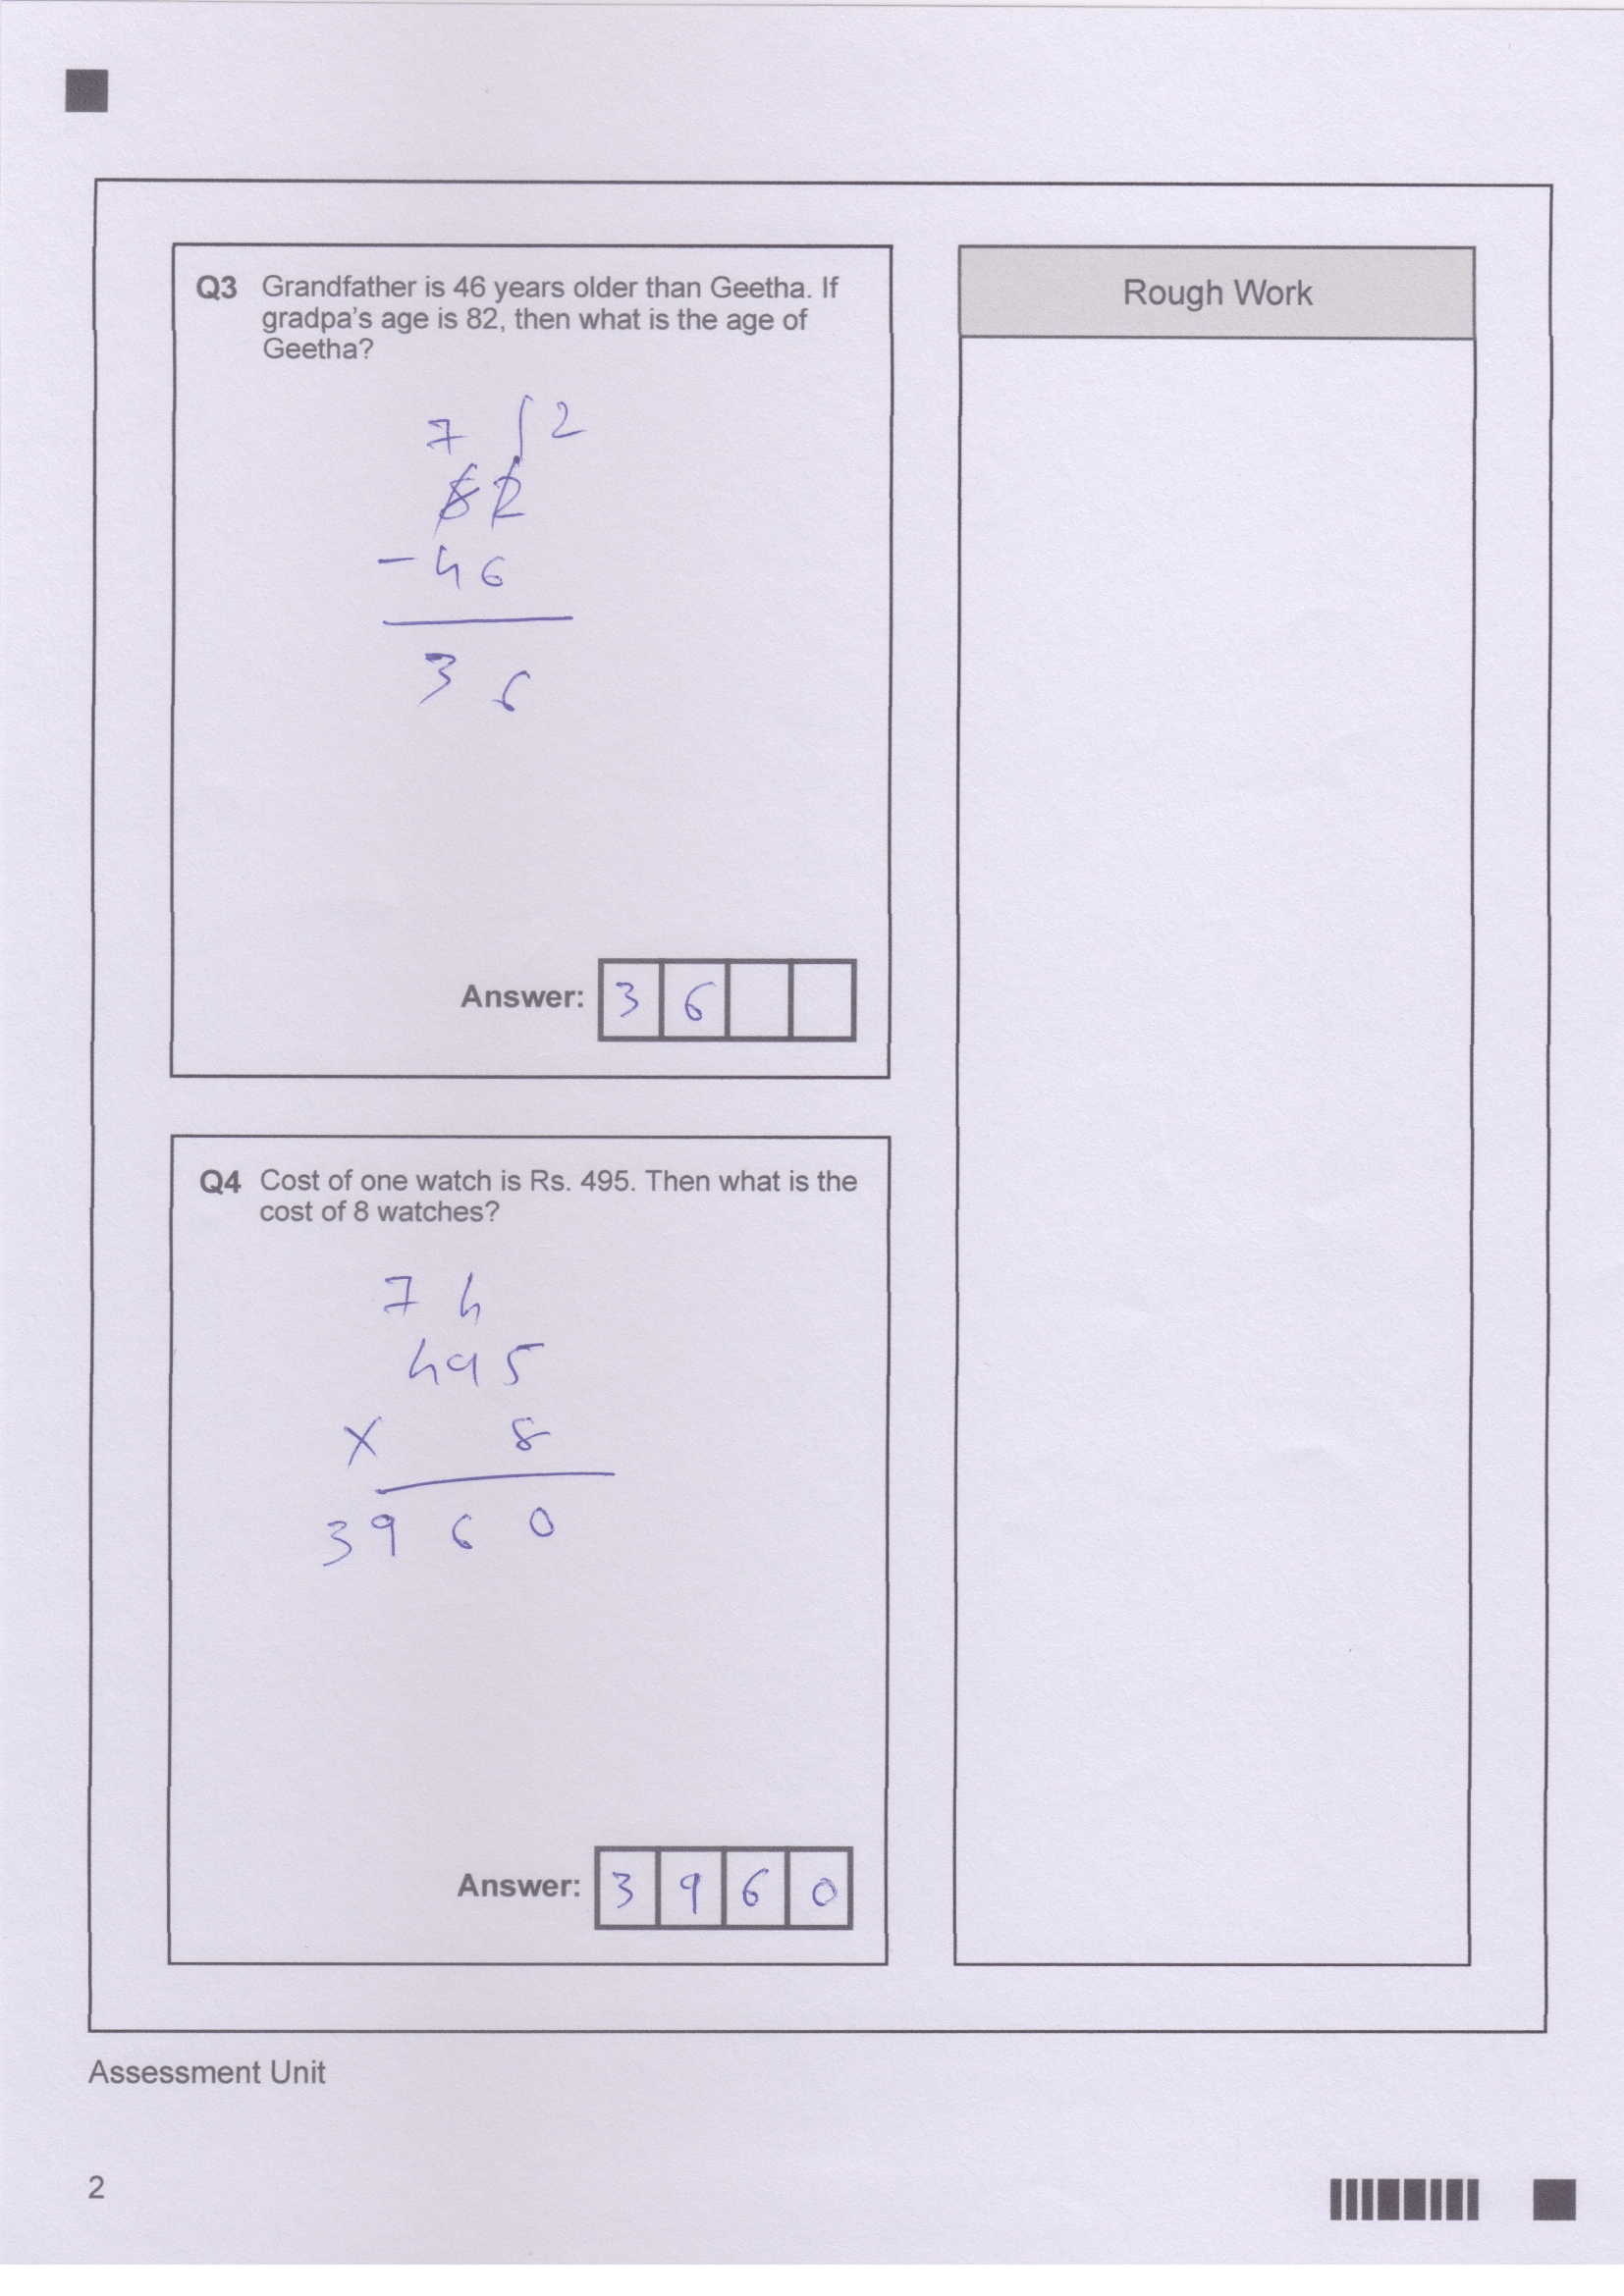 Q3 Grandfather is 46 years older than Geetha. If
gradpa's age is 82, then what is the age of
Geetha?
7 12
82
- 46
3 6
Answer: 3 6
Q4 Cost of one watch is Rs. 495. Then what is the
cost of 8 watches?
7 4
495
X 8
3960
Answer: 3 9 6 0
Rough Work
Assessment Unit
2